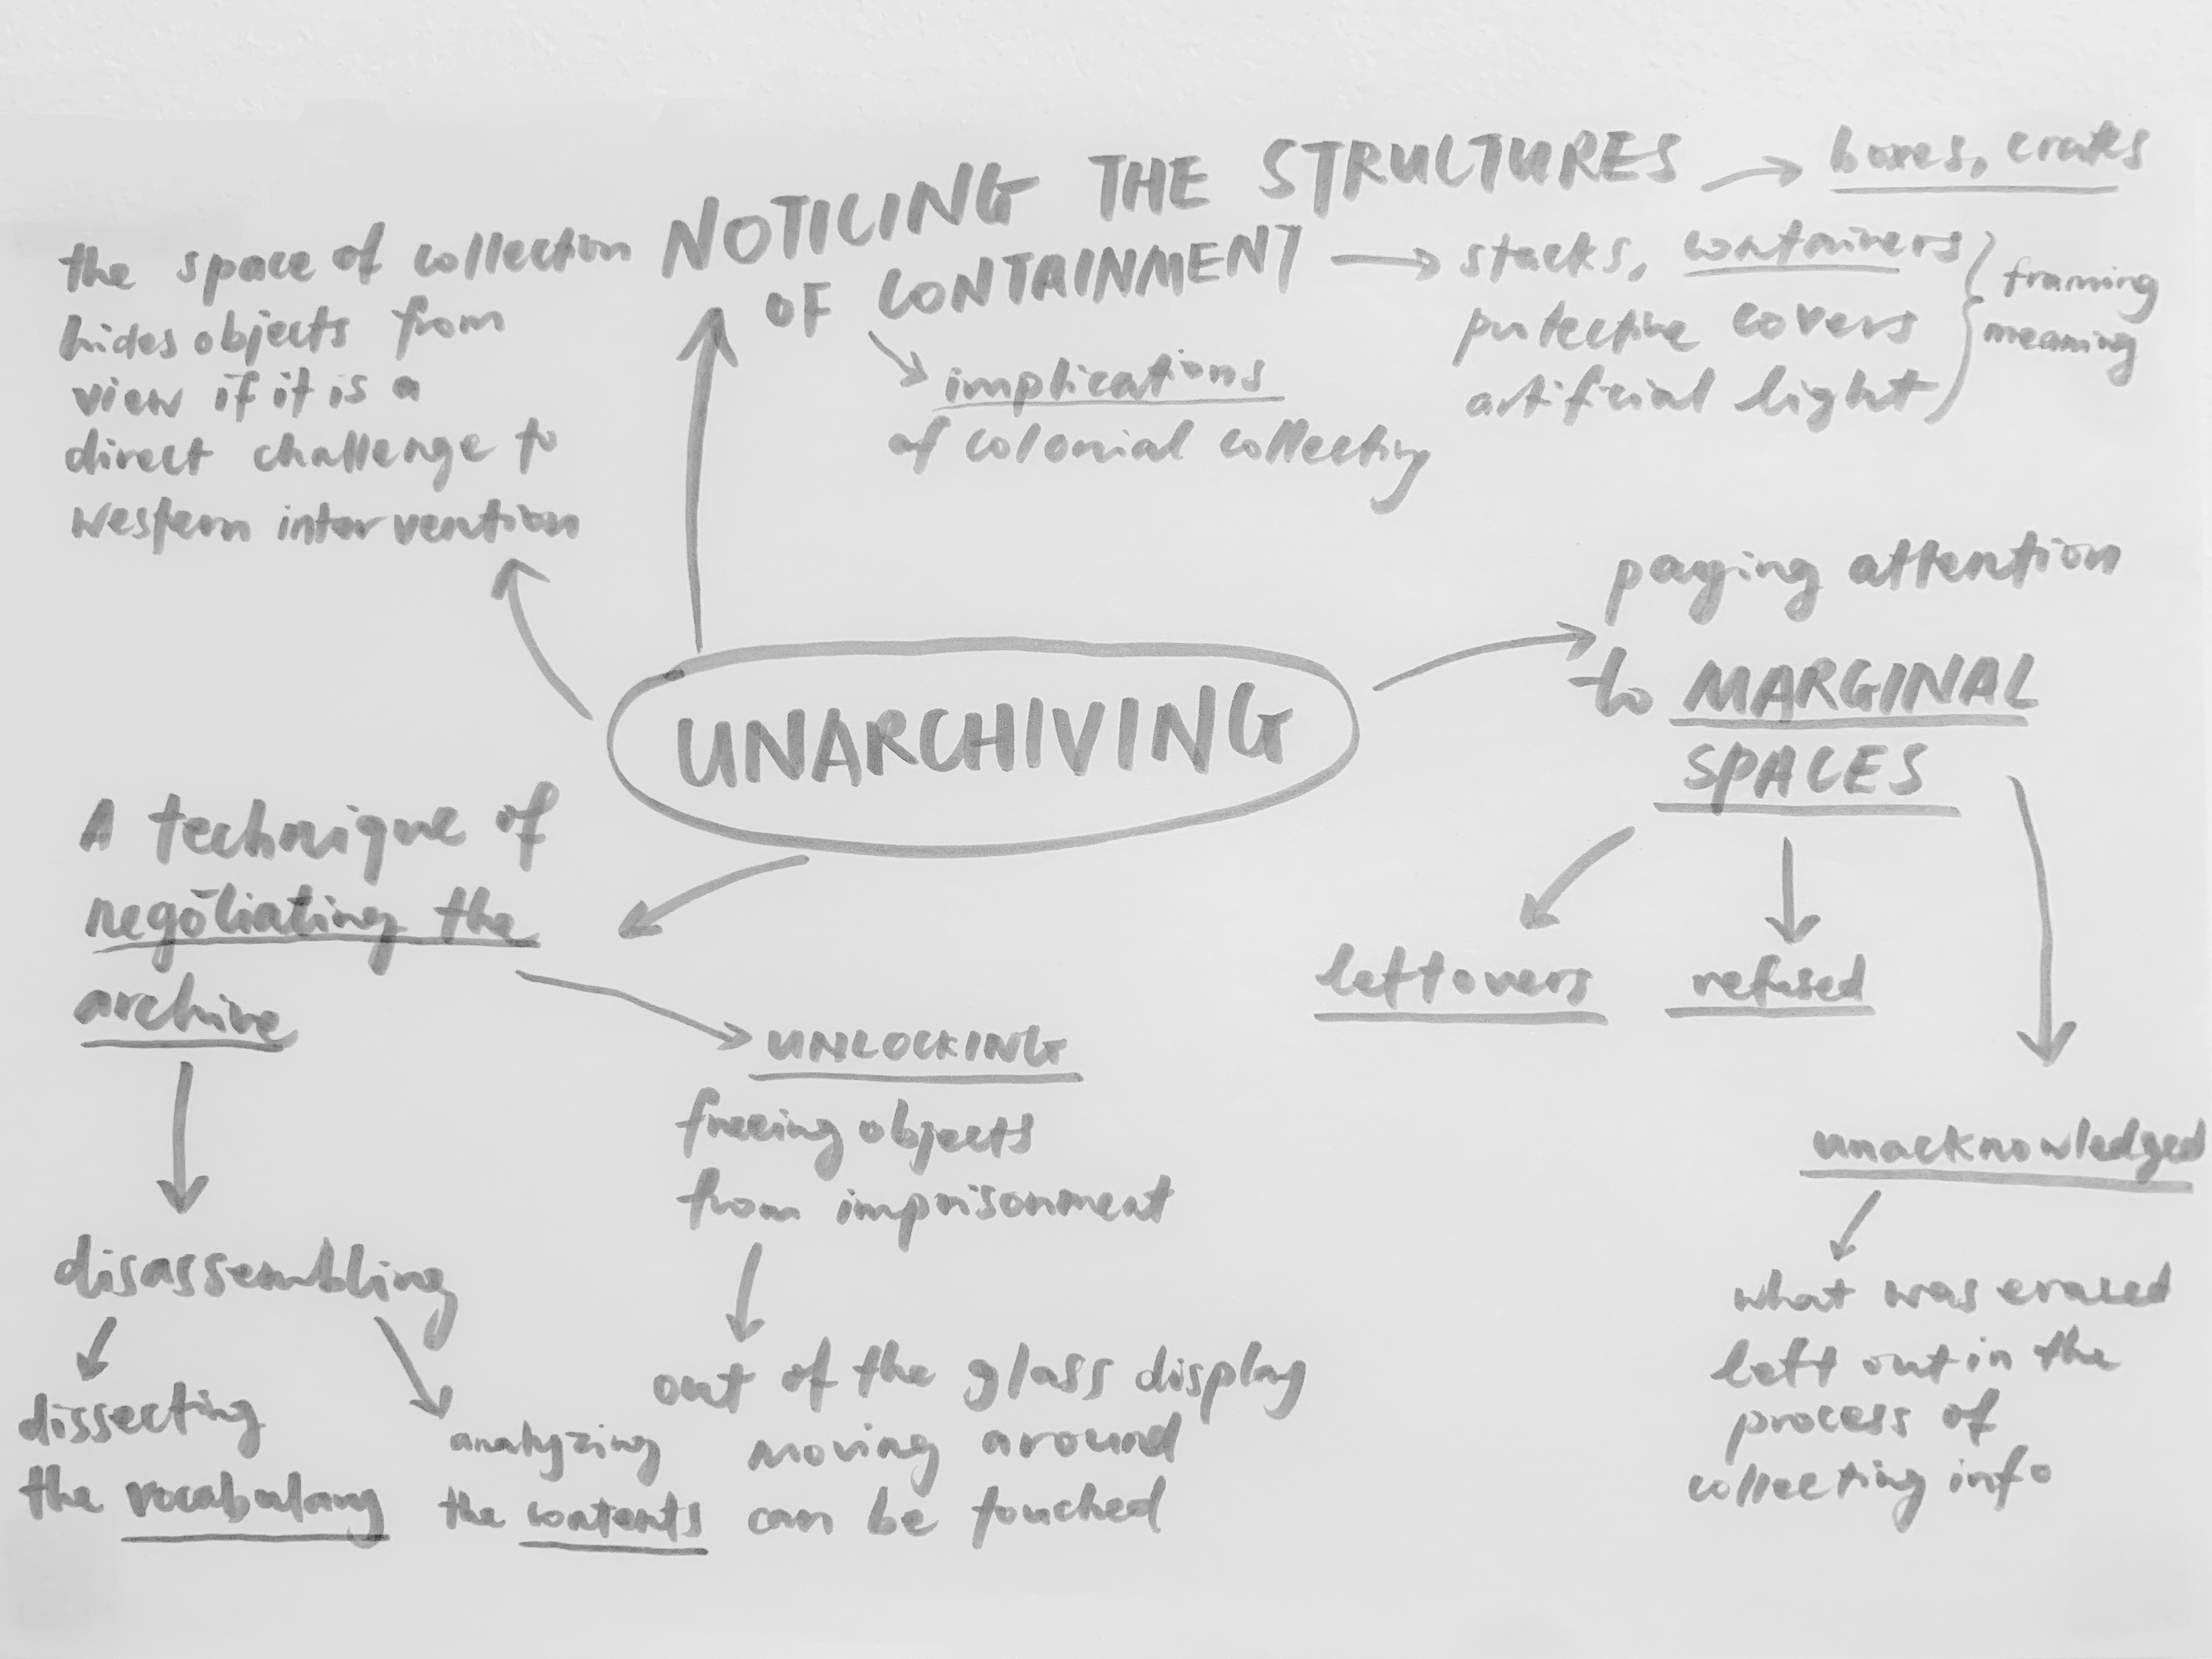 NOTICING THE STRUCTURES
OF CONTAINMENT
boxes, crates
stacks, containers
protective covers
artificial light
framing
meaning
implications
of colonial collecting
the space of collection
hides objects from
view if it is a
direct challenge to
western intervention
UNARCHIVING
paying attention
to MARGINAL
SPACES
leftovers
refused
unacknowledged
what was erased
left out in the
process of
collecting info
A technique of
negotiating the
archive
UNLOCKING
freeing objects
from imprisonment
out of the glass display
moving around
can be touched
disassembling
dissecting
the vocabulary
analyzing
the contents